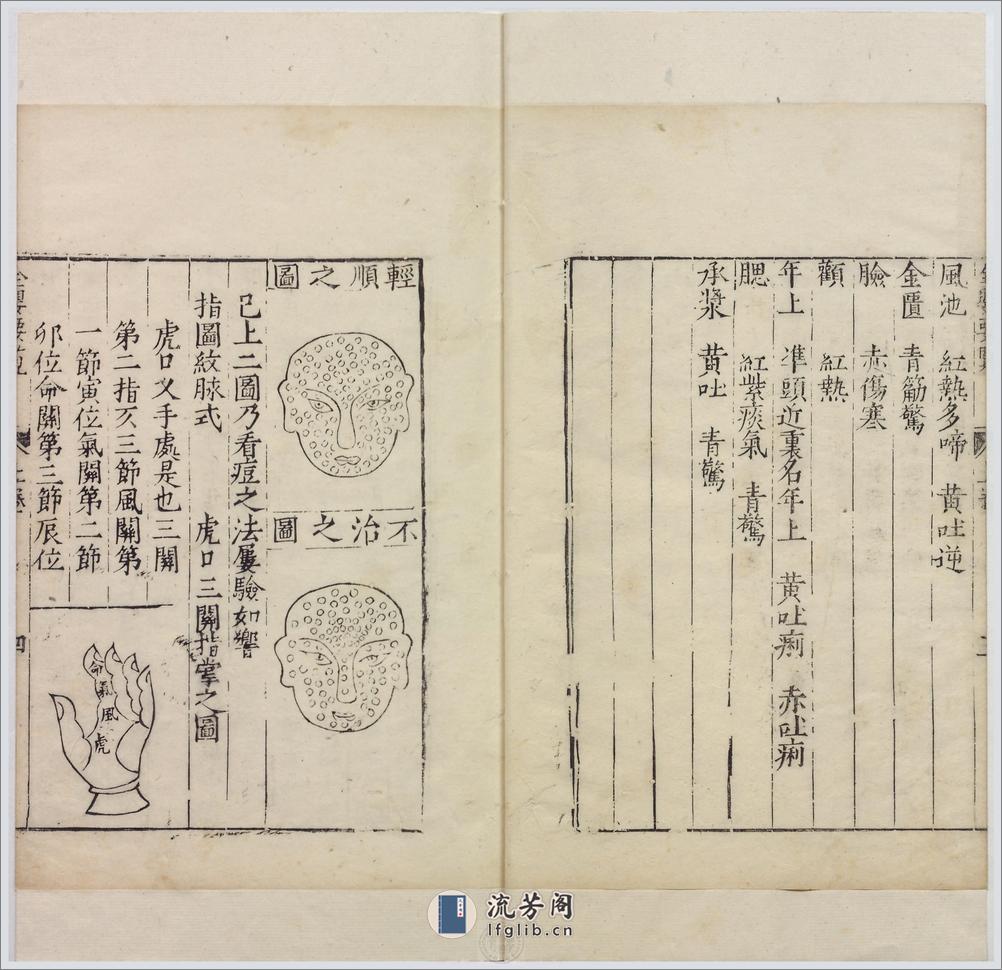 風池 紅熱多啼 黄吐逆
金匱 青筋驚
臉 赤傷寒
顴 紅熱
年上 準頭近裏名年上 黄吐痢 赤吐痢
腮 紅紫痰氣 青驚
承漿 黄吐 青驚
輕順之圖
不治之圖
已上二圖乃看痘之法屢驗如響
指圖紋脉式 虎口三關指掌之圖
虎口乂手處是也三關
第二指亥三節風關第
一節寅位氣關第二節
卯位命關第三節辰位
命
氣
風
虎
四
流芳阁
lfglib.cn